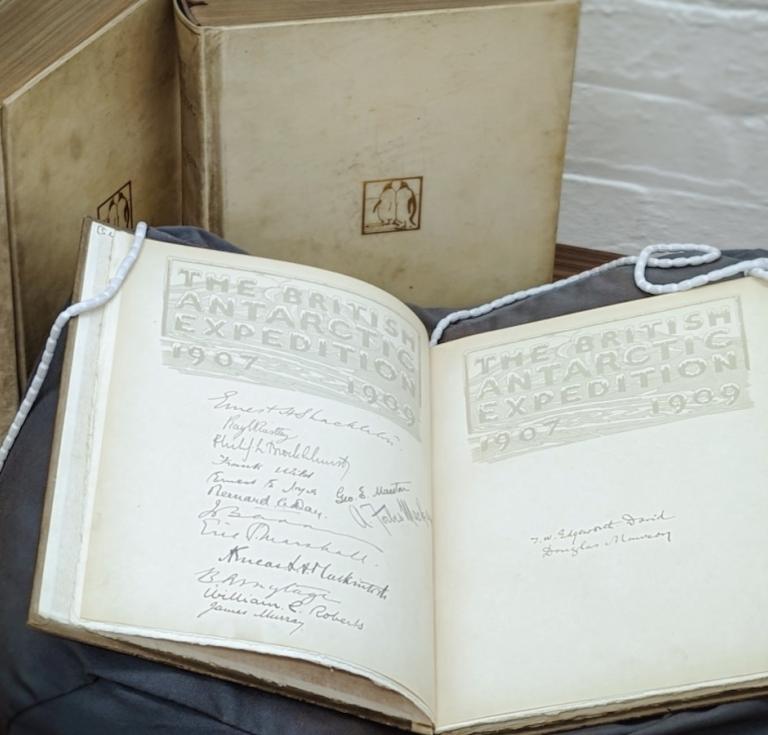 THE BRITISH
ANTARCTIC
EXPEDITION
1907 1909
Ernest H Shackleton.
Ray Priestley
Philip L Brocklehurst
Frank Wild
Ernest E Joyce Geo. E. Marston
Bernard C. Day. A Forbes Mackay
Eric Marshall.
Aeneas L A Mackintosh
B Armytage
William. C. Roberts
James Murray
THE BRITISH
ANTARCTIC
EXPEDITION
1907 1909
T. W. Edgeworth David
Douglas Mawson